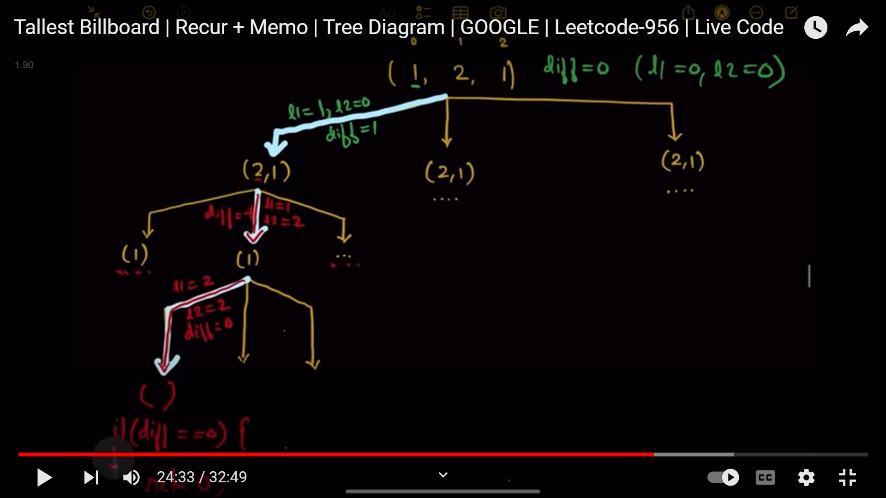 Tallest Billboard | Recur + Memo | Tree Diagram | GOOGLE | Leetcode-956 | Live Code
1.90
0 1 2
(1, 2, 1) diff=0 (l1=0, l2=0)
l1=1, l2=0
diff=1
(2,1) (2,1) (2,1)
.... ....
diff=-1 l1=1
l2=2
(1) (1) ...
l1=2
l2=2
diff=0
( )
if(diff==0) {
24:33 / 32:49
CC